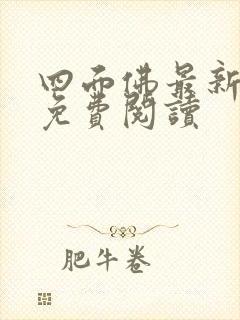 四面佛最新
免費閱讀
肥牛卷